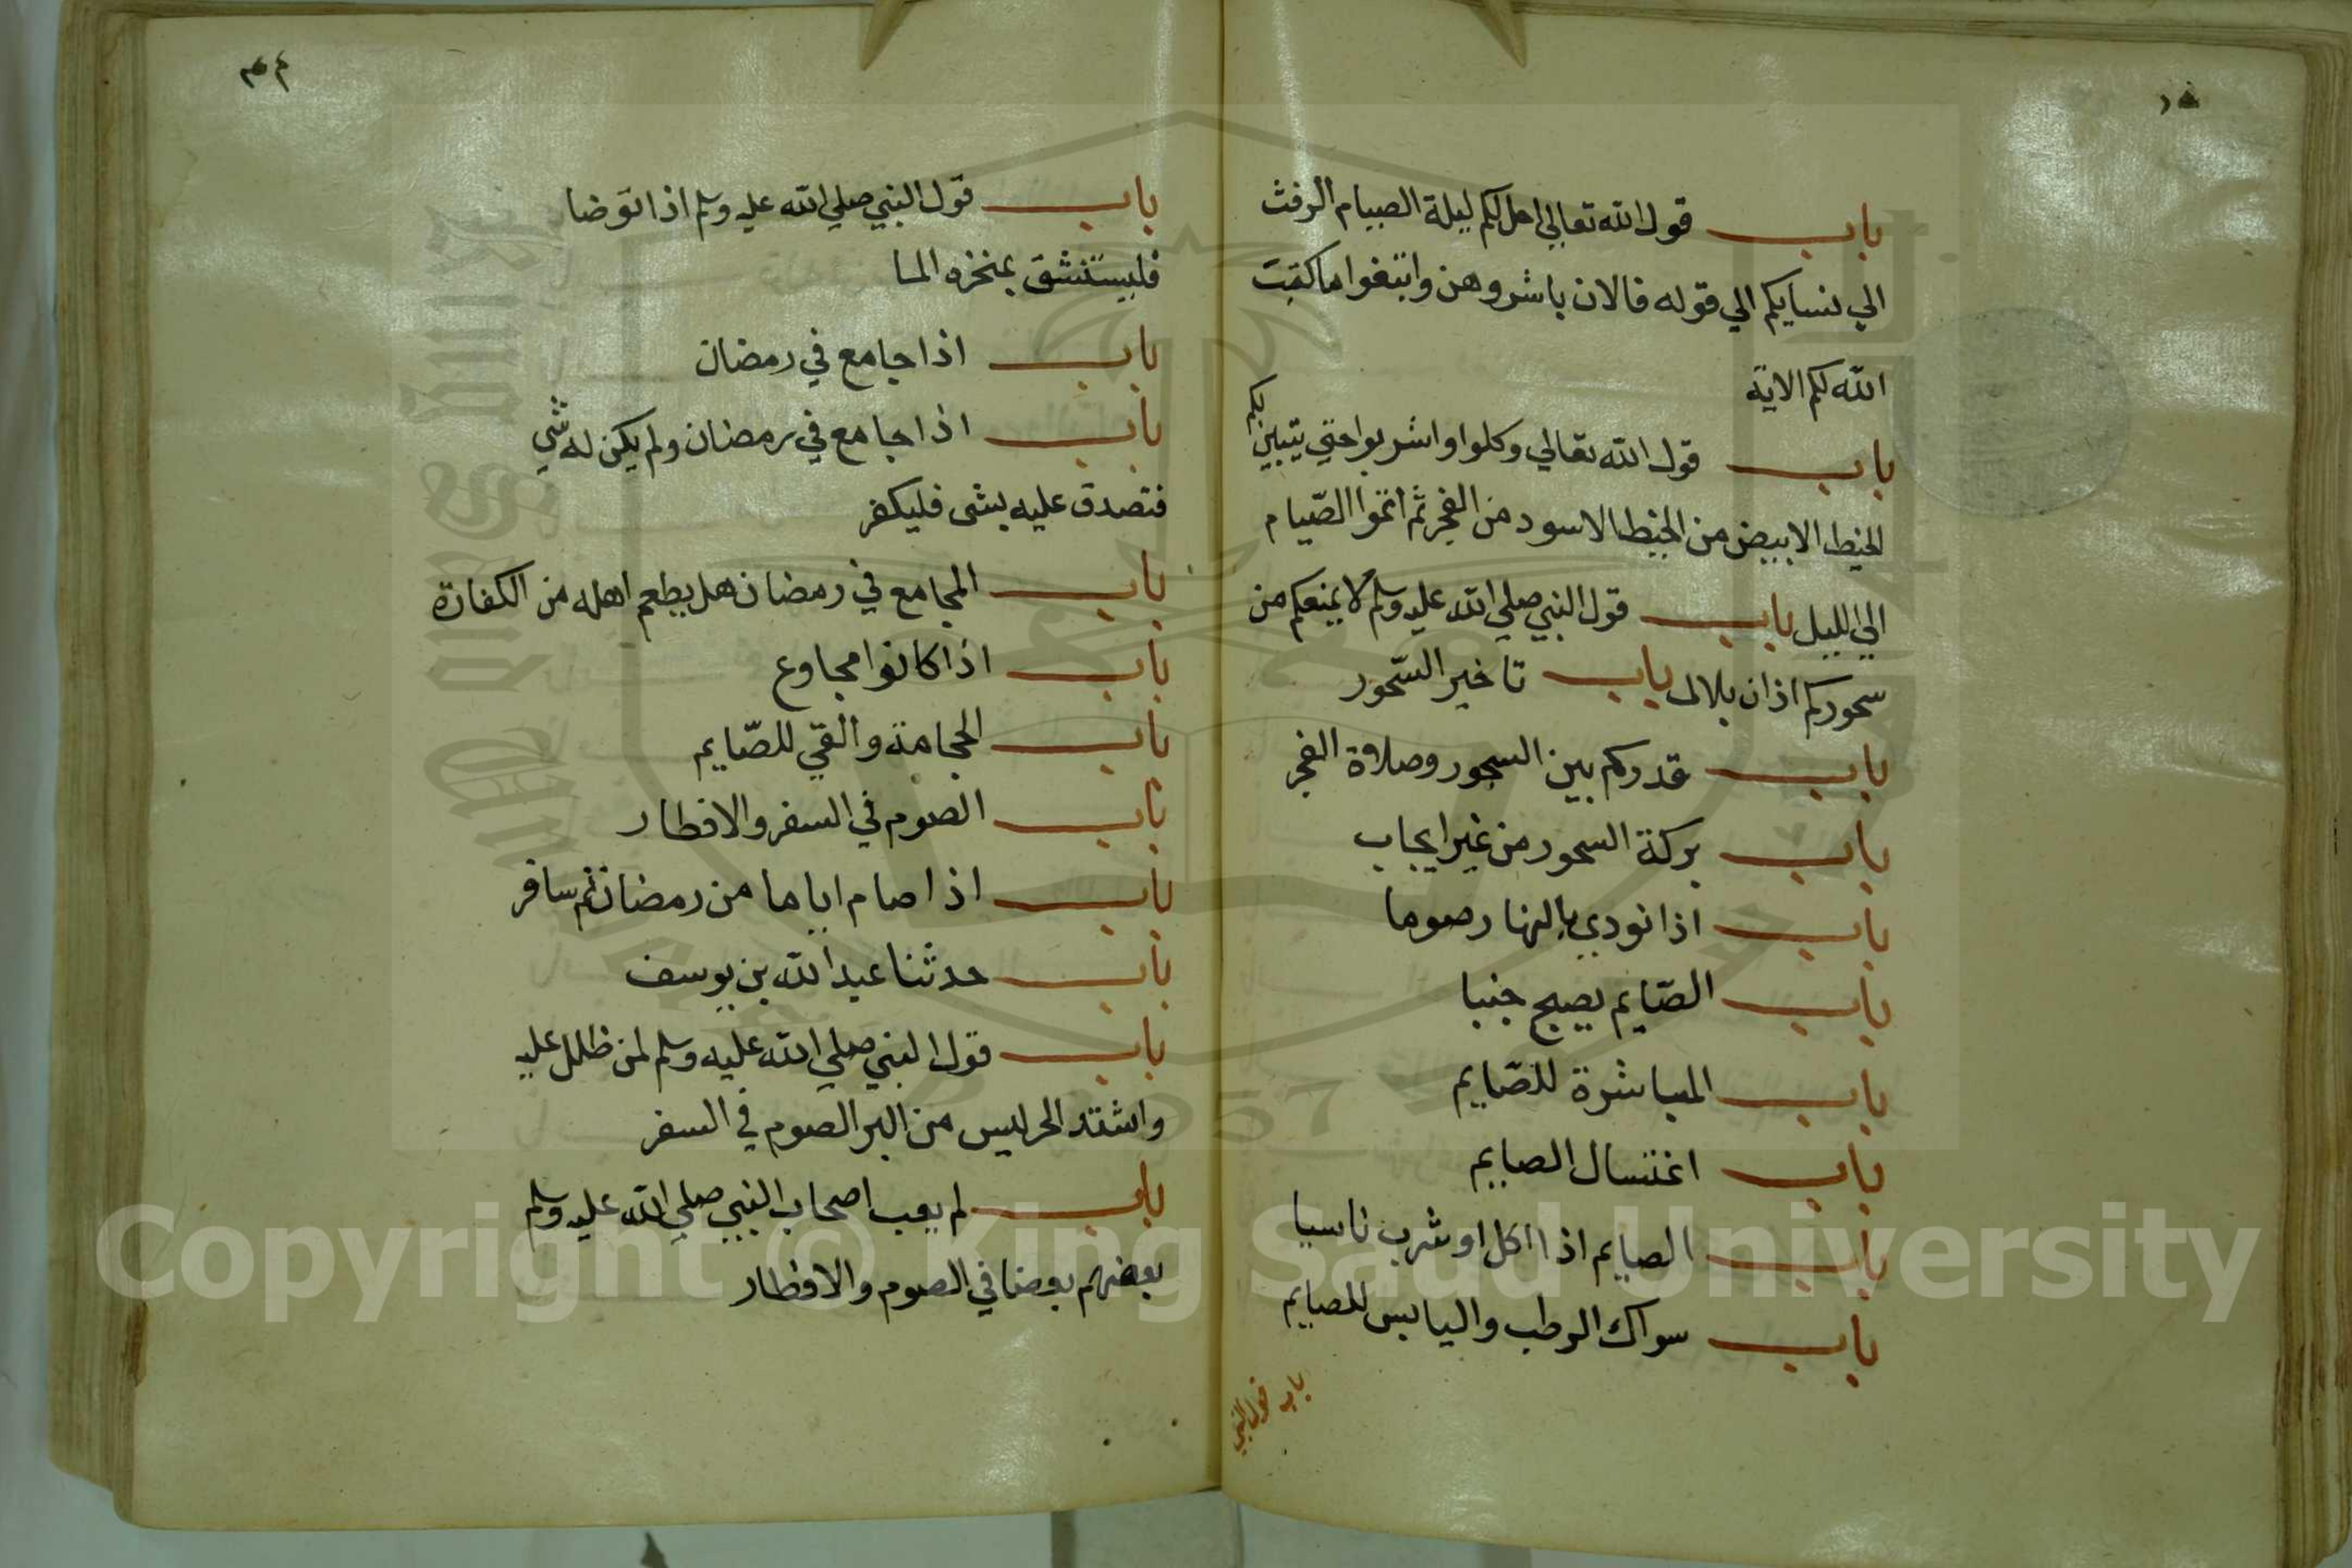 باب قول الله تعالي احل لكم ليلة الصيام الرفث
الي نسايكم الي قوله فالان باشروهن وابتغوا ما كتبت
الله لكم الاية
باب قول الله تعالي وكلوا واشربوا حتي يتبين لكم
الخيط الابيض من الخيط الاسود من الفجر ثم اتموا الصّيام
الي الليل باب قول النبي صلي الله عليه وسلم لا يمنعكم من
سحوركم اذان بلال باب تاخير السّحور
باب قدركم بين السحور وصلاة الفجر
باب بركة السحور من غير ايجاب
باب اذا نودي بالنهار صوما
باب الصّايم يصبح جنبا
باب المباشرة للصّايم
باب اغتسال الصايم
باب الصايم اذا اكل او شرب ناسيا
باب سواك الرطب واليابس للصايم
باب قول النبي
٤٣
باب قول النبي صلي الله عليه وسلم اذا توضا
فليستنشق بمنخزه الما
باب اذا جامع في رمضان
باب اذا جامع في رمضان ولم يكن له شي
فتصدق عليه بشى فليكفر
باب المجامع في رمضان هل يطعم اهله من الكفارة
باب اذا كانوا مجاوع
باب الحجامة والقي للصّايم
باب الصوم في السفر والافطار
باب اذا صام اياما من رمضان ثم سافر
باب حدثنا عبد الله بن يوسف
باب قول النبي صلي الله عليه وسلم لمن ظلل عليه
واشتد الحر ليس من البر الصوم في السفر
باب لم يعب اصحاب النبي صلي الله عليه وسلم
بعضهم بعضا في الصوم والافطار
Copyright © King Saud University
1957